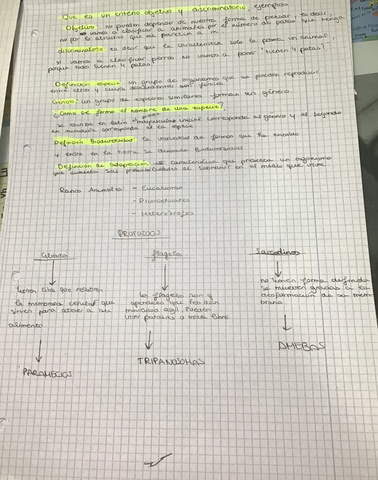 Que es un criterio objetivo y discriminatorio, ejemplos
Objetivo: no pueden depender de nuestra forma de pensar, es decir,
vamos a clasificar a animales por el número de patas que tenga
no por lo atractivo que me parezca a mi.
discriminatorio es decir que la característica solo la posea un animal,
si vamos a clasificar perros no vamos a poner "tienen 4 patas"
porque todos tienen 4 patas.
Definición especie: un grupo de organismos que se pueden reproducir
entre ellos y cuyos descendientes son fértiles
Género: un grupo de especies similares forman un género.
¿Cómo se forma el nombre de una especie?
Se escribe en latín mayúscula inicial corresponde al género y el segundo
en minúscula corresponde a la especie
Definición Biodiversidad: la variedad de formas que ha existido
y existe en la tierra se denomina Biodiversidad
Definición de adaptación: característica que presenta un organismo
que aumenta sus probabilidades de sobrevivir en el medio que vive.
Reino Animales: - Eucariotas
- Pluricelulares
- Heterótrofos
PROTOZOOS
Ciliado Flagelo Sarcodinos
tienen cilios que rodean
la membrana celular que
sirven para atraer a su
alimento.
los flagelos son
que les dan
movilidad ágil Pueden
vivir parásitos o vida libre
no tienen forma definida
se mueven gracias a la
deformación de su mem
brana
PARAMECIOS
TRIPANOSOMAS
AMEBAS